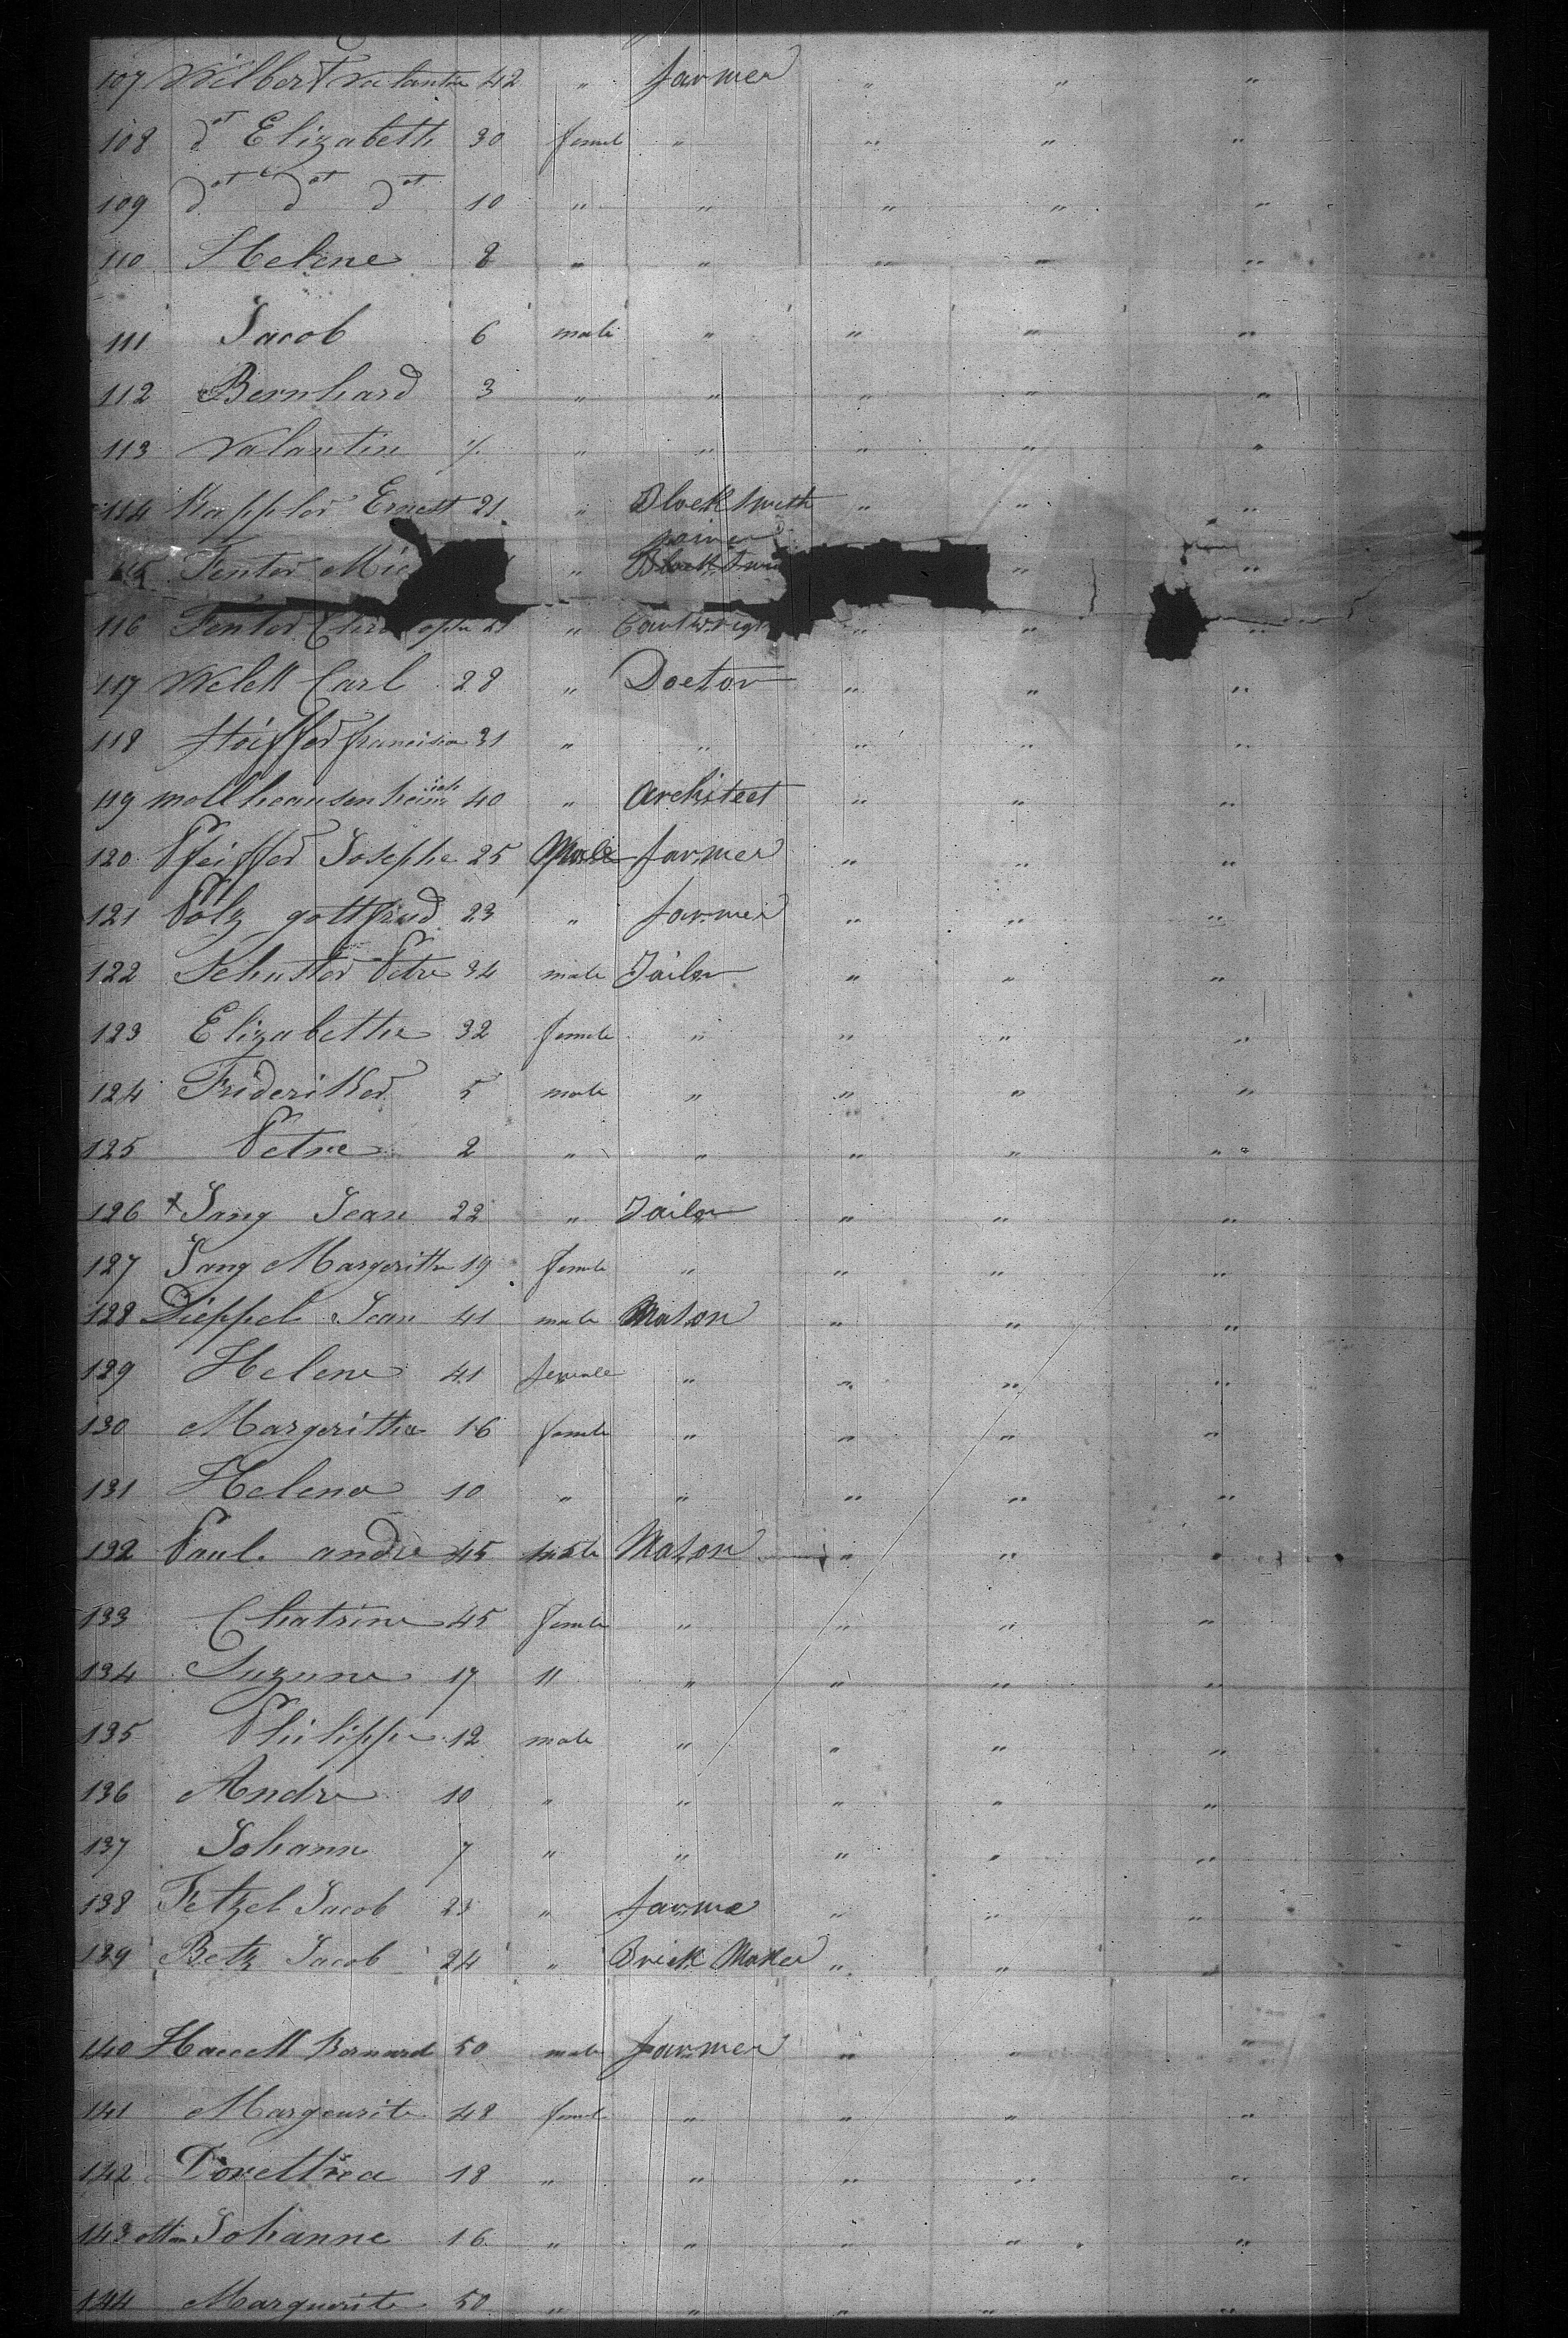 107 Wilbert Valantin 42 " farmer " " "
108 dot Elizabeth 30 femel " " " "
109 dot dot dot 10 " " " " "
110 Helene 8 " " " " "
111 Jacob 6 male " " " "
112 Bernhard 3 " " " " "
113 Valantin " " " " "
114 Kappler Ernest 21 " Blocksmith " " "
joiner
115 Fenter Mic " " "
116 Fenter " " " "
117 Welck Carl 28 " Doctor " " "
118 31 " " " " "
119 40 " Architect " " "
120 Pfeiffer Josephe 25 Male farmer " " "
121 Polz gottfried 23 " farmer " " "
122 Schuster Petre 34 male Tailor " " "
123 Elizabethe 32 femele " " " "
124 Frideriker 5 male " " " "
125 Petre 2 " " " " "
126 x Jang Jean 22 " Tailor " " "
127 Jang Margeritha 19 femele " " " "
128 Dieppel Jean 41 male Mason " " "
129 Helene 41 female " " " "
130 Margeritha 16 femele " " " "
131 Helena 10 " " " " "
132 Paul. andre 45 male Mason " " "
133 Chatrine 45 femele " " " "
134 Suzune 17 " " " " "
135 Philippe 12 male " " " "
136 Andre 10 " " " " "
137 Johann 7 " " " " "
138 Fetzel Jacob 23 " farme " " "
139 Betz Jacob 24 " Brick Maker " " "
140 Bernard 50 male farmer " " "
141 Margeurite 48 femele " " " "
142 Dorettrea 18 " " " " "
143 Johanne 16 " " " " "
144 Marguerite 50 " " " " "